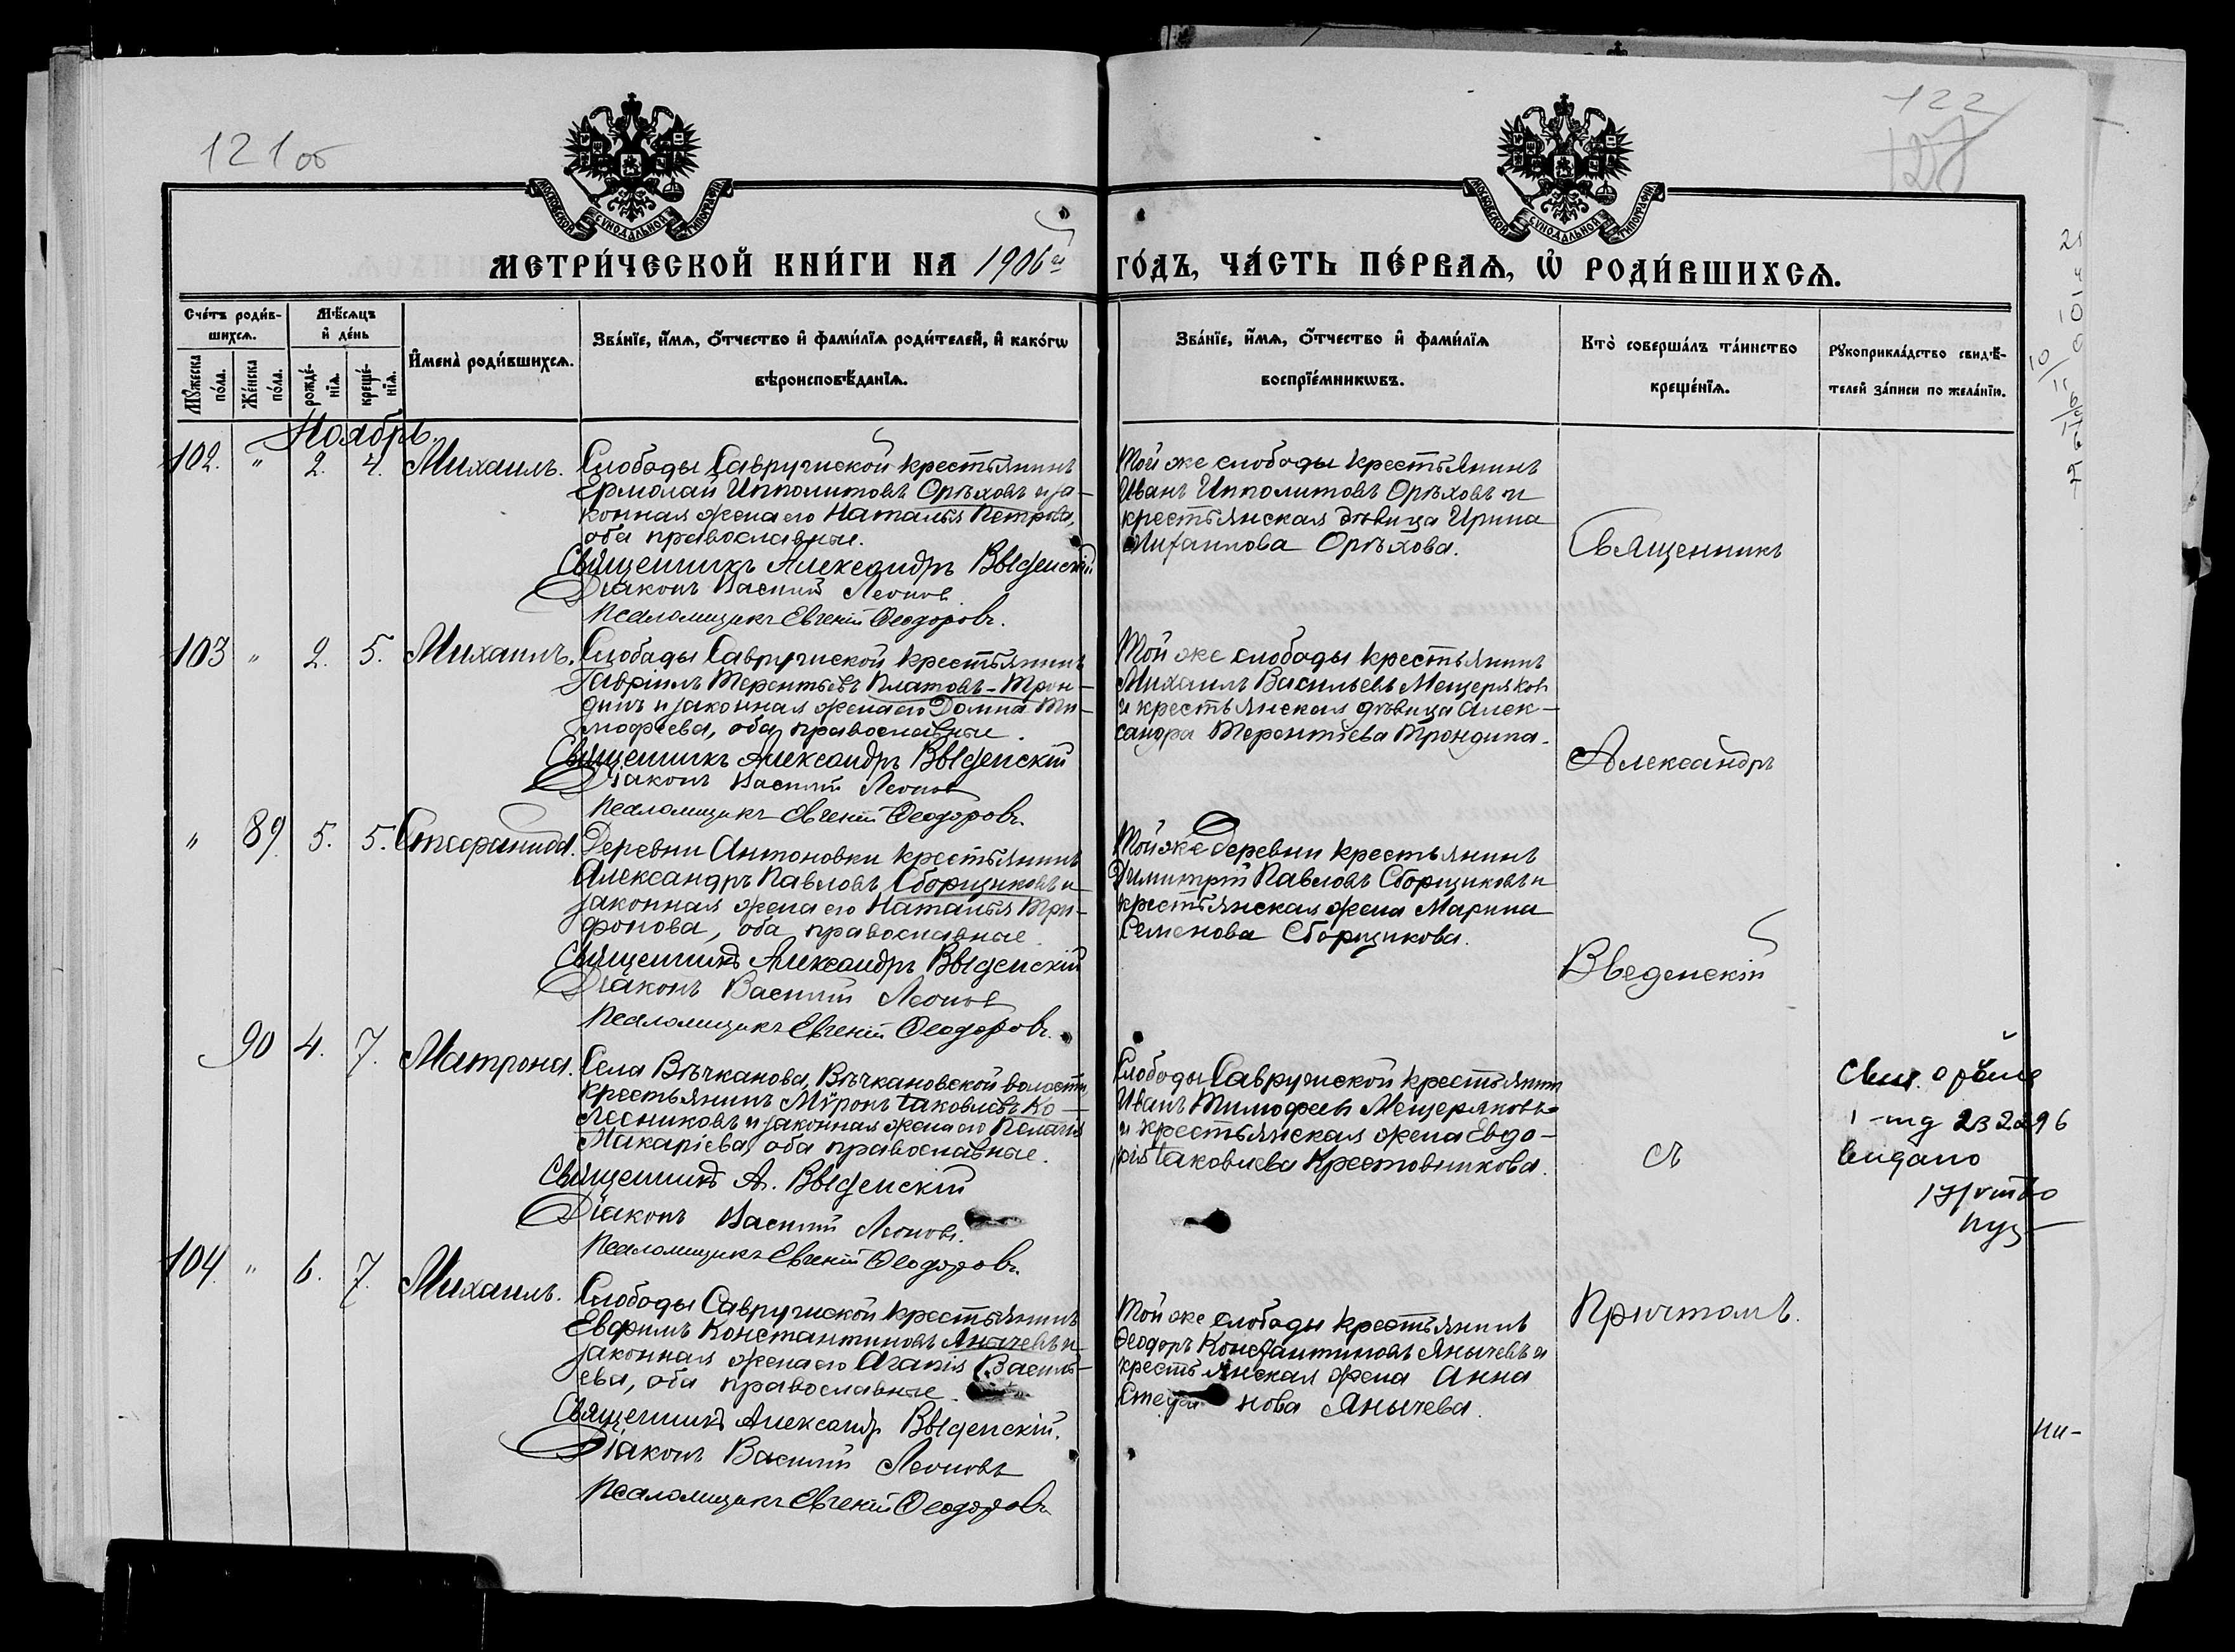 121об
122
127
МОСКОВСКОЙ СѴНОДАЛЬНОЙ ТИПОГРАФІИ
МОСКОВСКОЙ СѴНОДАЛЬНОЙ ТИПОГРАФІИ
МЕТРИ́ЧЕСКОЙ КНИ́ГИ НА 1906й ГО́ДЪ, ЧА́СТЬ ПЕ́РВАѦ, Ѡ҆ РОДИ́ВШИХСѦ.
Сче́тъ роди́в-
шихсѧ.
Мꙋ́жеска
по́ла.
Же́нска
по́ла.
Мѣ́сѧцъ
и҆ де́нь
рожде́-
нїѧ.
креще́-
нїѧ.
И҆мена̀ роди́вшихсѧ.
Зва́нїе, и҆́мѧ, ѻ҆́тчество и҆ фами́лїѧ роди́телей, и҆ како́гѡ
вѣроисповѣ́данїѧ.
Зва́нїе, и҆́мѧ, ѻ҆́тчество и҆ фами́лїѧ
воспрїе́мникѡвъ.
Кто̀ соверша́лъ та́инство
креще́нїѧ.
Рꙋкоприкла́дство свидѣ́-
телей за́писи по жела́нїю.
Ноябрь.
102. " 2. 4. Михаилъ.
Слободы Савругиской крестьянинъ
Ермолай Ипполитовъ Орѣховъ и за-
конная жена его Наталья Петрова,
оба православные.
Священникъ Александръ Введенскій
Діаконъ Василій Леонов
Псаломщикъ Евгеній Ѳеодоровъ.
Той же слободы крестьянинъ
Иванъ Ипполитовъ Орѣховъ и
крестьянская дѣвица Ирина
Орѣхова.
Священникъ
103 " 2. 5. Михаилъ.
Слободы Савругиской крестьянинъ
Гавріилъ Терентьевъ Платовъ-Трон-
динъ и законная жена его Домна Ти-
мофеева, оба православные.
Священникъ Александръ Введенскій
Діаконъ Василій Леонов
Псаломщикъ Евгеній Ѳеодоровъ.
Той же слободы крестьянинъ
Михаилъ Васильевъ Мещеряков
и крестьянская дѣвица Алек-
сандра Терентіева Трондина.
Александръ
" 89. 5. 5. Стефанида.
Деревни Антоновки крестьянинъ
Александръ Павловъ Сборщиковъ и
законная жена его Наталья Три-
фонова, оба православные.
Священникъ Александръ Введенскій
Діаконъ Василій Леонов
Псаломщикъ Евгеній Ѳеодоровъ.
Той же деревни крестьянинъ
Димитрій Павловъ Сборщиковъ и
крестьянская жена Марина
Семенова Сборщикова.
Введенскій
90 4. 7. Матрона.
Села Вѣчканова, Вѣчкановской волости
крестьянинъ Мѵронъ Іаковлевъ Ко-
лесниковъ и законная жена его Пелагія
Макаріева, оба православные.
Священникъ А. Введенскій
Діаконъ Василій Леоновъ.
Псаломщикъ Евгеній Ѳеодоровъ.
Слободы Савругиской крестьянинъ
Иванъ Тимофеевъ Мещеряковъ
и крестьянская жена Евдо-
кія Іаковлева Крестовникова.
съ
выдано
104. " 6. 7. Михаилъ.
Слободы Савругиской крестьянинъ
Евфимъ Константиновъ Янычевъ и
законная жена его Агапія Василь-
ева, оба православные.
Священникъ Александръ Введенскій.
Діаконъ Василій Леоновъ
Псаломщикъ Евгеній Ѳеодоровъ
Той же слободы крестьянинъ
Ѳеодоръ Константиновъ Янычевъ и
крестьянская жена Анна
Стефанова Янычева.
Причтомъ.